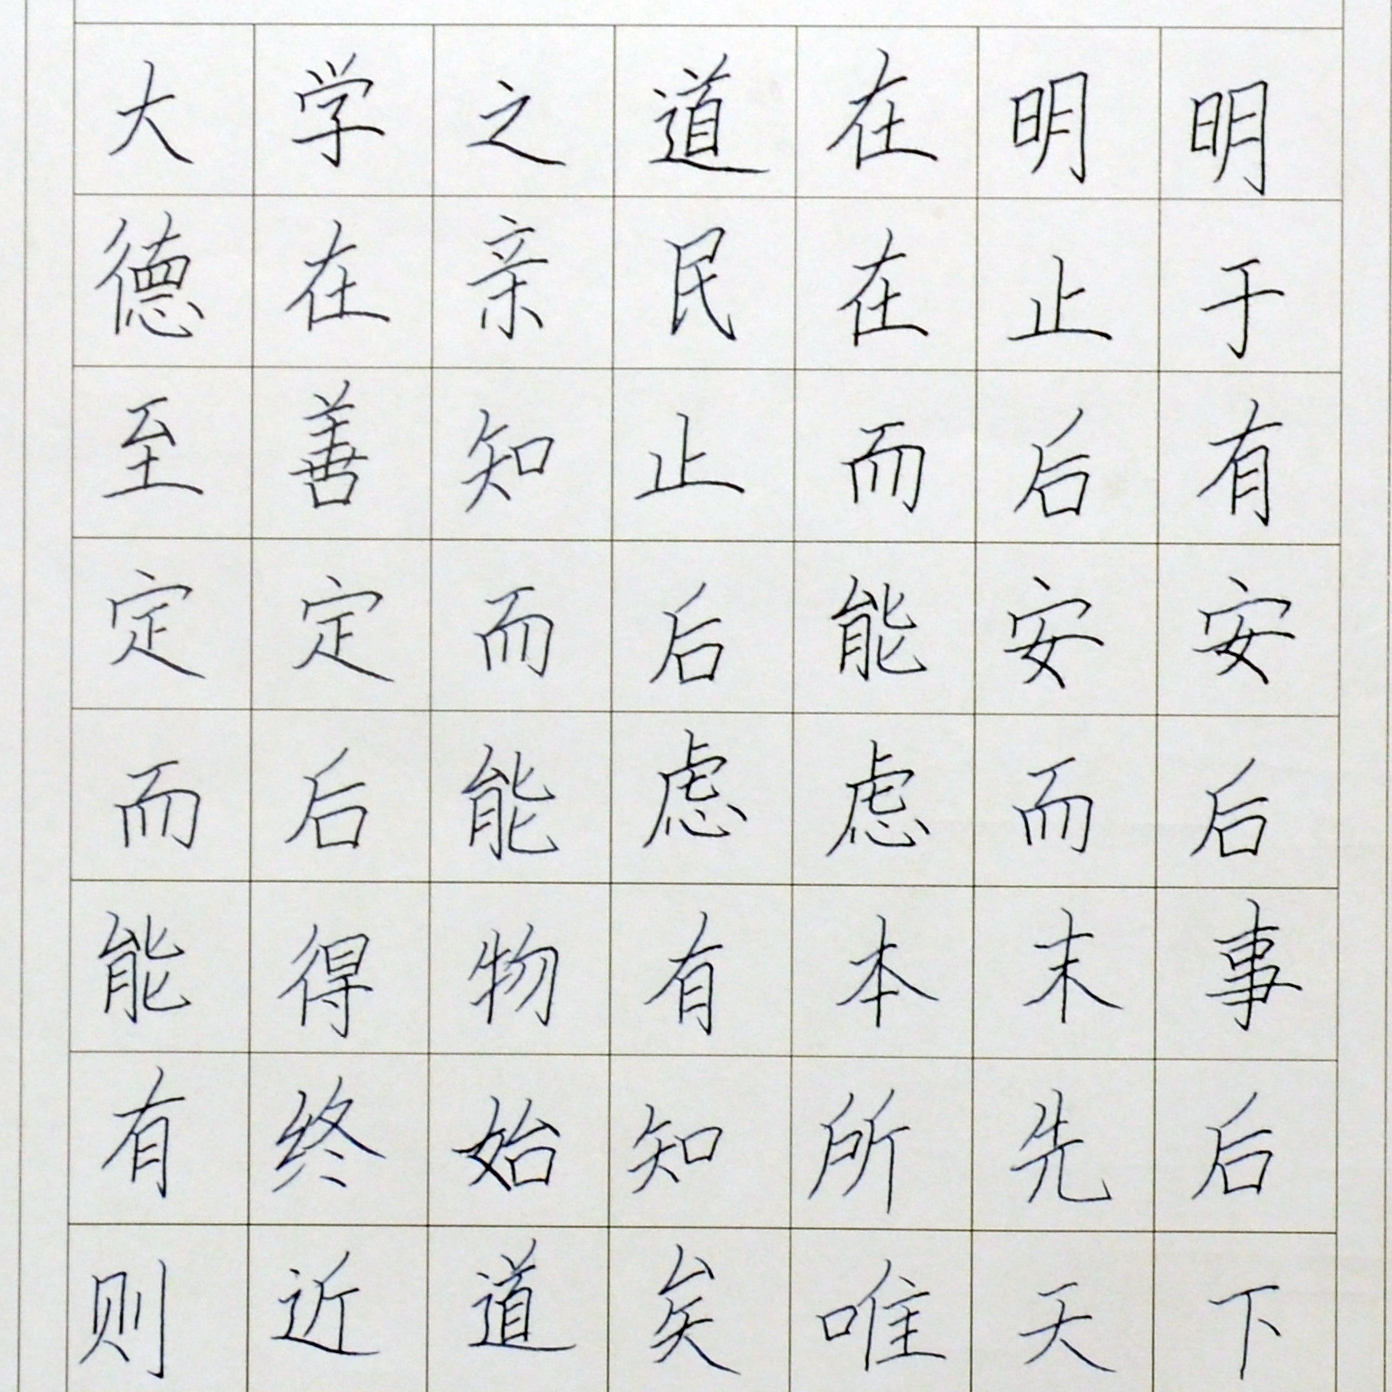 大学之道在明明
德在亲民在止于
至善知止而后有
定定而后能安安
而后能虑虑而后
能得物有本末事
有终始知所先后
则近道矣唯天下